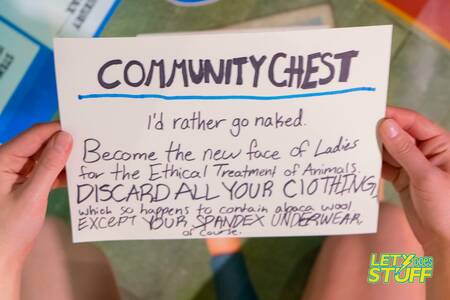 COMMUNITY CHEST
I'd rather go naked.
Become the new face of Ladies
for the Ethical Treatment of Animals.
DISCARD ALL YOUR ClOTHING,
which so happens to contain alpaca wool
EXCEPT YOUR SPANDEX UNDERWEAR,
of course.
LETY DOES
STUFF